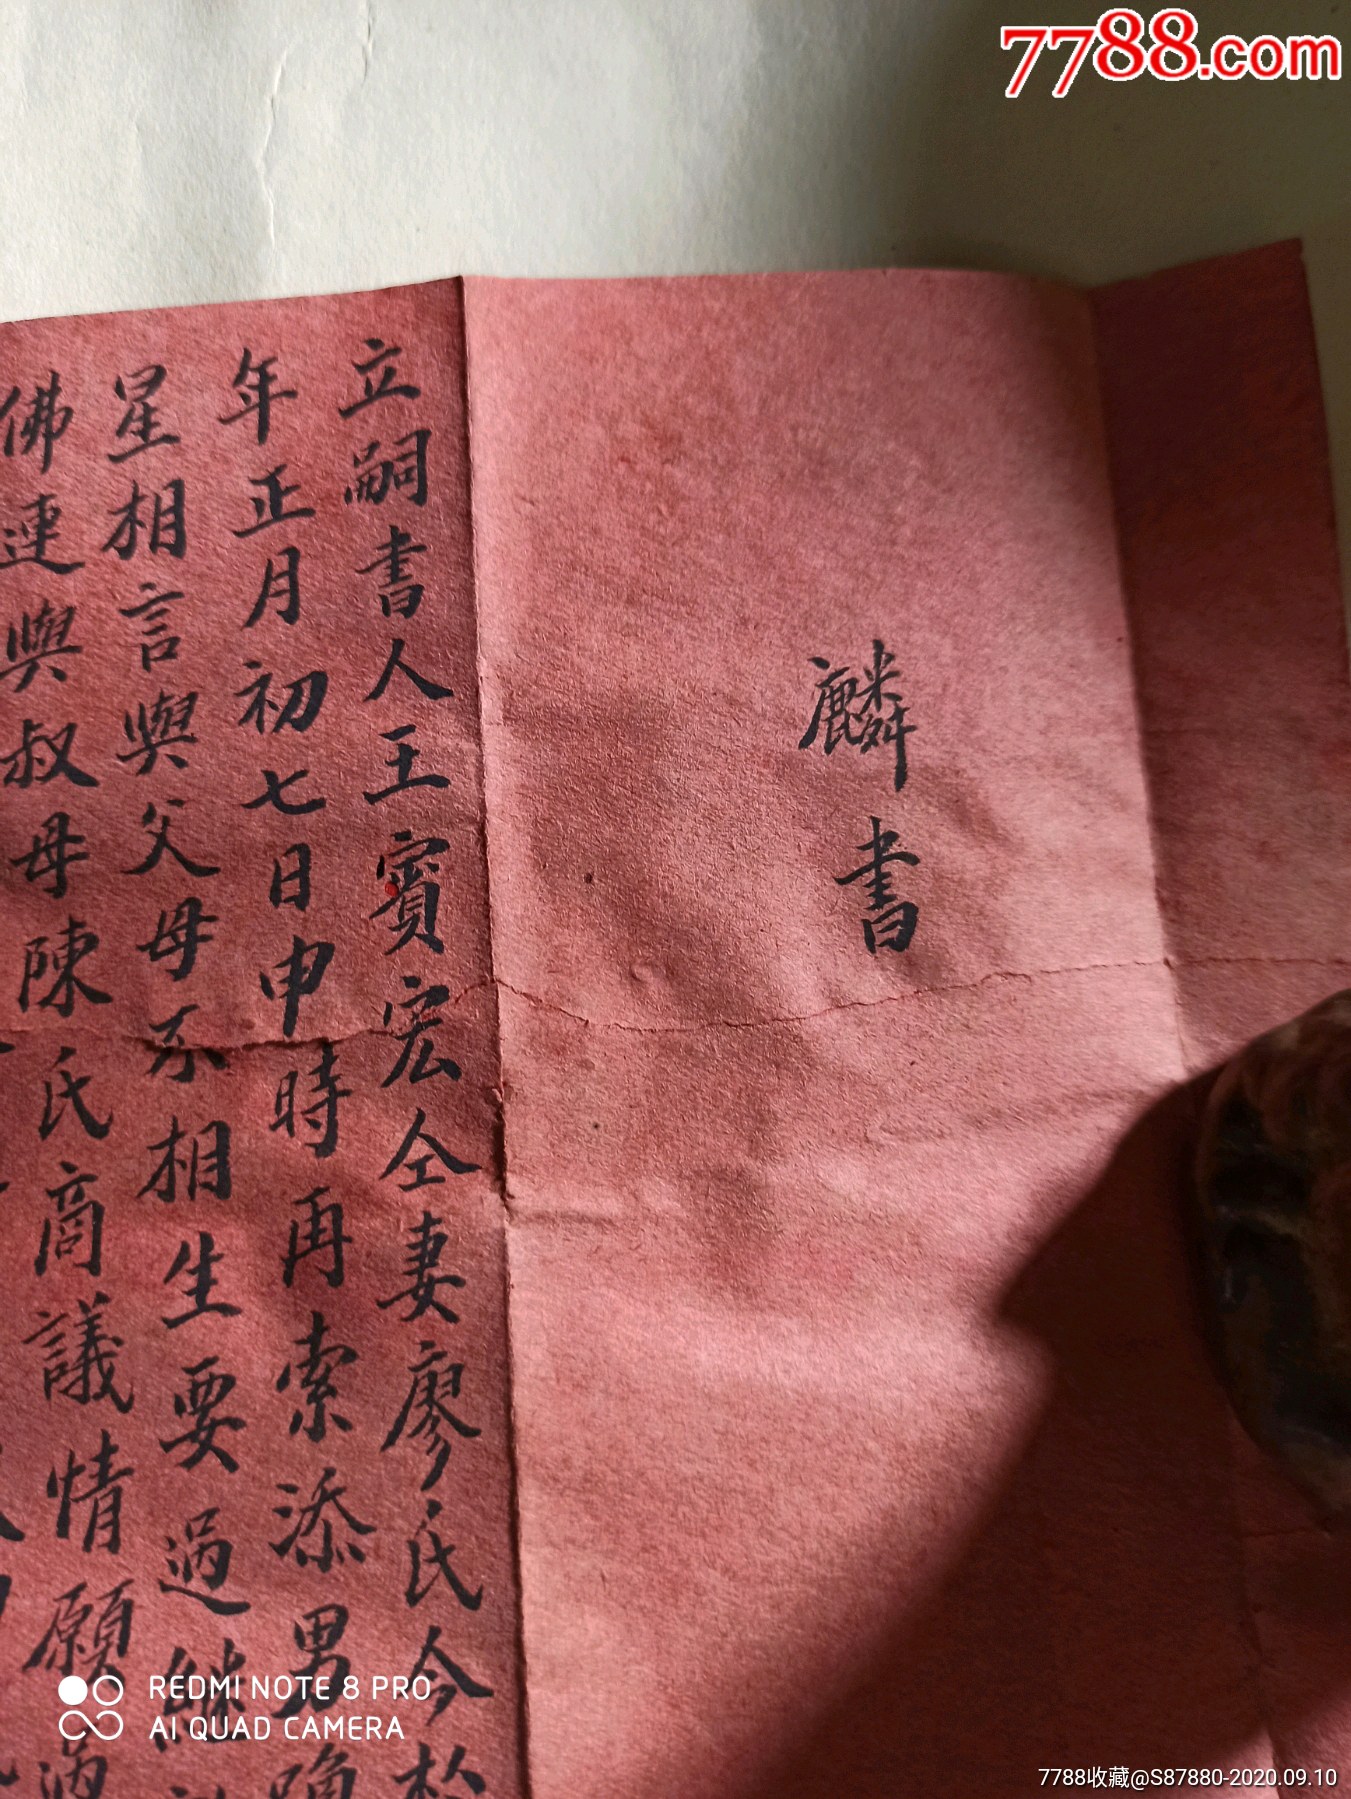 7788.com
麟書
立嗣書人王賓宏仝妻廖氏今於
年正月初七日申時再索添男
星相言與父母不相生要過継
佛連與叔母陳氏商議情願過
REDMI NOTE 8 PRO
AI QUAD CAMERA
7788收藏@S87880-2020.09.10